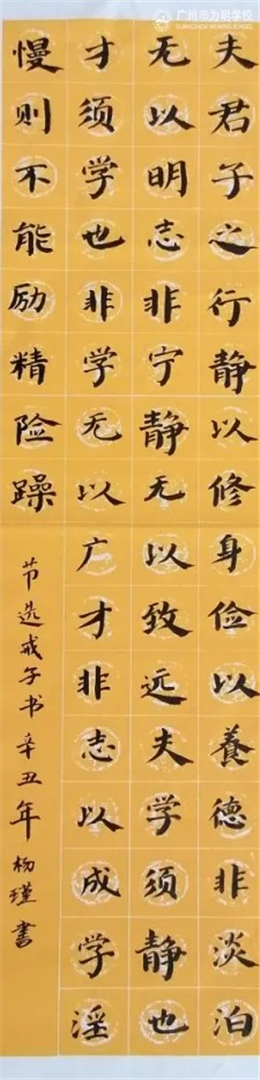 广州市为明学校
GUANGZHOU WEIMING SCHOOL
夫君子之行静以修身俭以養德非淡泊
无以明志非宁静无以致远夫学须静也
才须学也非学无以广才非志以成学淫
慢则不能励精险躁
节选戒子书辛丑年杨瑾书